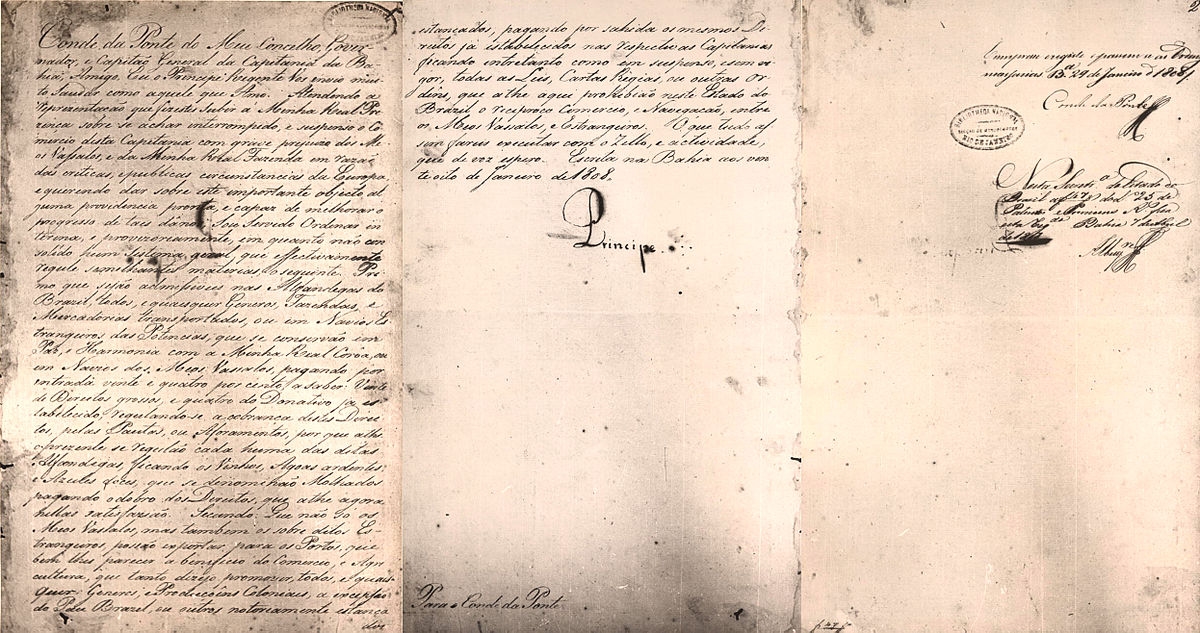 Conde da Ponte do Meu Concelho, Gover-
nador, e Capitão General da Capitania da Ba-
hia, Amigo. Eu o Principe Regente vos envio mui-
to Saudar como aquele que Amo. Atendendo a
representação que fizestes subir a Minha Real Pre-
zença sobre se achar interrompido, e suspenso o Co-
mercio desta Capitania com grave prejuizo dos Me-
os Vassalos, e da Minha Real Fazenda em razaõ
das criticas, e publicas circunstancias da Europa,
e querendo dar sobre este importante objecto al-
guma providencia pronta, e capaz de melhorar o
progresso de taes danos: Sou Servido Ordenar in-
terina, e provizoriamente, em quanto não con-
solido hum sistema geral, que effectivamente
regule semelhantes materias o seguinte. Pri-
mo que sejão admissiveis nas Alfandegas do
Brazil todos, e quaesquer Generos, Fazendas, e
Mercadorias transportados, ou em Navios Es-
trangeiros das Potencias, que se conservão em
Paz, e Harmonia com a Minha Real Coroa, ou
em Navios dos Meos Vassalos, pagando por
entrada vinte e quatro por cento; a saber: Vinte
de Direitos grossos, e quatro do Donativo ja es-
tabelecido, regulando-se a cobrança destes Direi-
tos, pelas Pautas, ou Aforamentos, por que athe
o prezente se regulão cada huma das ditas
Alfandegas, ficando os Vinhos, Agoas ardentes,
e Azeites doces, que se denominaõ Molhados
pagando o dobro dos Direitos, que athe agora
nellas satisfazião. Secundo: Que não só os
Meos Vassalos, mas tambem os sobre ditos Es-
trangeiros possão exportar para os Portos, que
bem lhes parecer a beneficio do Comercio, e Agri-
cultura, que tanto dezejo promover, todos, e quaes-
quer Generos, e Producçoens Coloniaes, a excepção
do Páu Brazil, ou outros notoriamente estanca-
dos
estancados, pagando por sahida os mesmos Di-
reitos já estabelecidos nas respectivas Capitanias
ficando entretanto como em suspenso, e sem vi-
gor, todas as Leis, Cartas Regias, ou outras Or-
dens, que athe aqui prohibião neste Estado do
Brazil o reciproco Comercio, e Navegação, entre
os Meos Vassalos, e Estrangeiros. O que tudo as-
sim fareis executar com o Zello, e actividade,
que de vós espero. Escrita na Bahia aos vin-
te oito de Janeiro de 1808.
Principe
Para o Conde da Ponte
Cumprase, registe e passem-se as Ordens
necessarias. Bª 29 de Janeiro de 1808
Conde da Ponte
BIBLIOTHECA NACIONAL
RIO DE JANEIRO
Brasil
Bahia